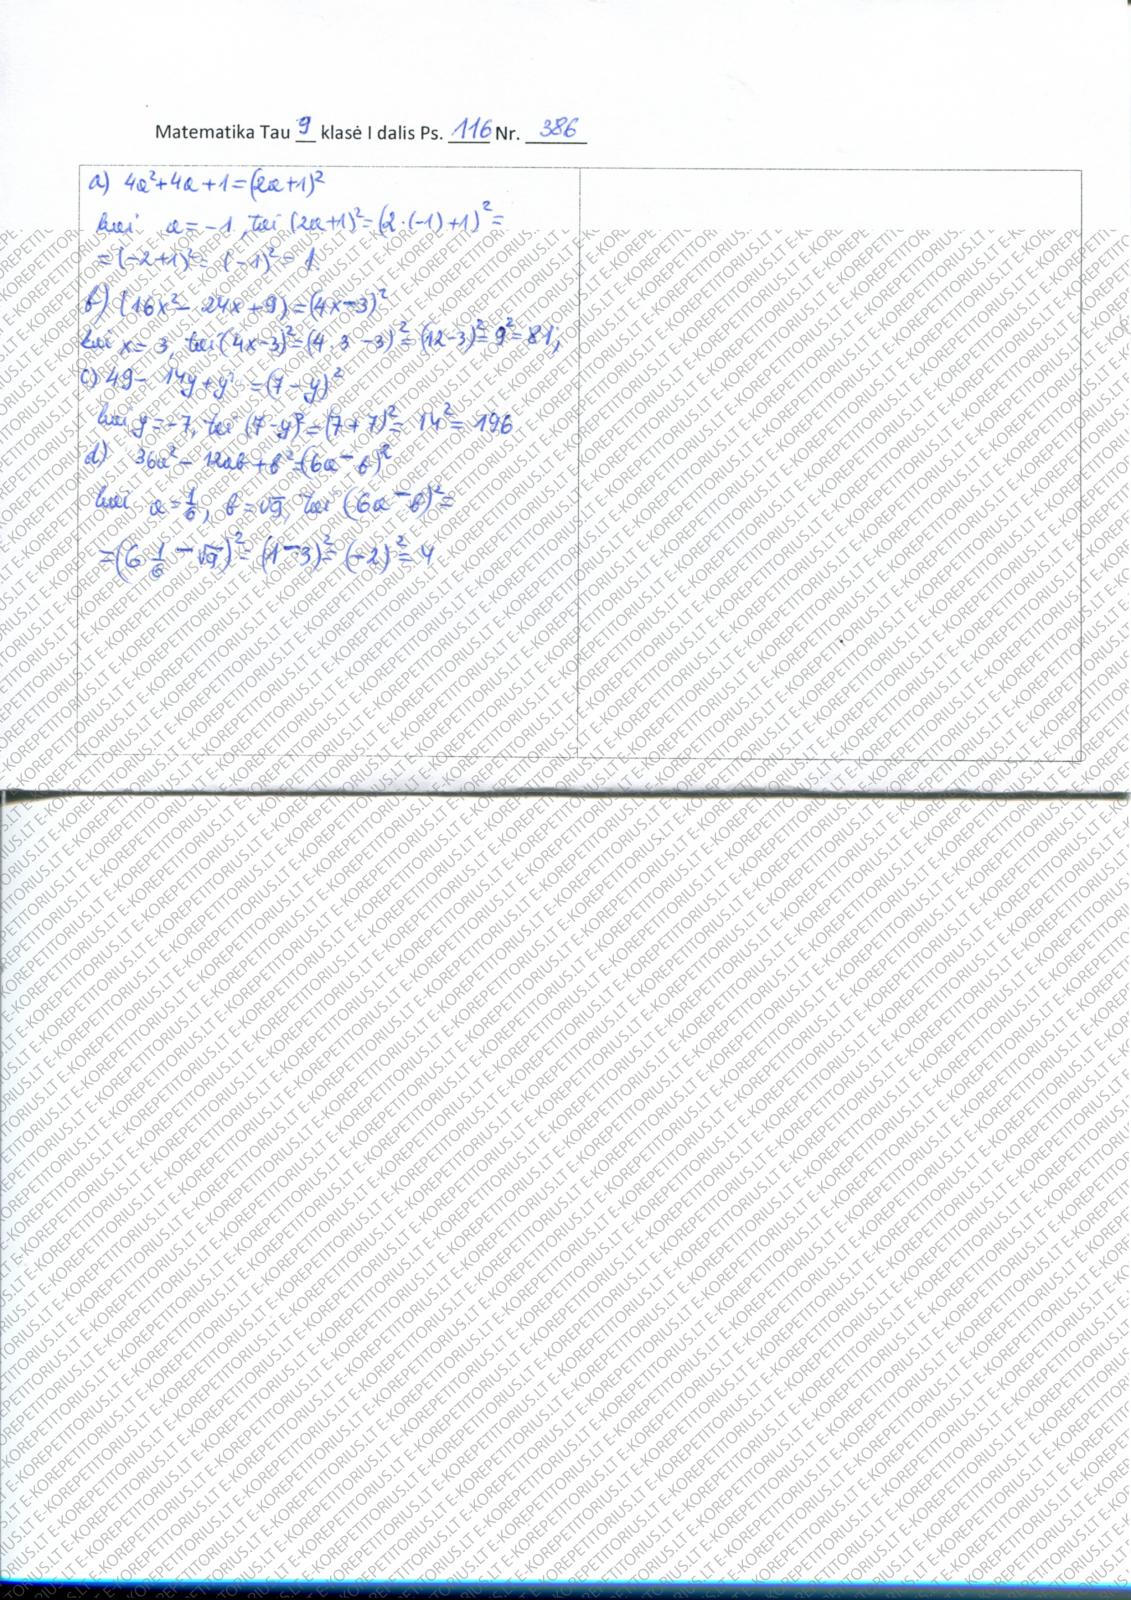 Matematika Tau 9 klasė I dalis Ps. 116 Nr. 386
a) 4a²+4a+1=(2a+1)²
kai a=-1, tai (2a+1)²=(2·(-1)+1)²=
=(-2+1)²=(-1)²=1.
b) (16x²-24x+9)=(4x-3)²
kai x=3, tai (4x-3)²=(4·3-3)²=(12-3)²=9²=81;
c) 49-14y+y²=(7-y)²
kai y=-7, tai (7-y)²=(7+7)²=14²=196
d) 36a²-12ab+b²=(6a-b)²
kai a=1/6, b=√9, tai (6a-b)²=
=(6·1/6-√9)²=(1-3)²=(-2)²=4
E-KOREPETITORIUS.LT